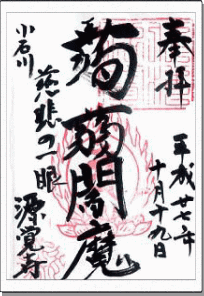 奉拝
平成廿七年
十月十九日
蒟蒻閻魔
小石川
慈悲の一眼
源覚寺